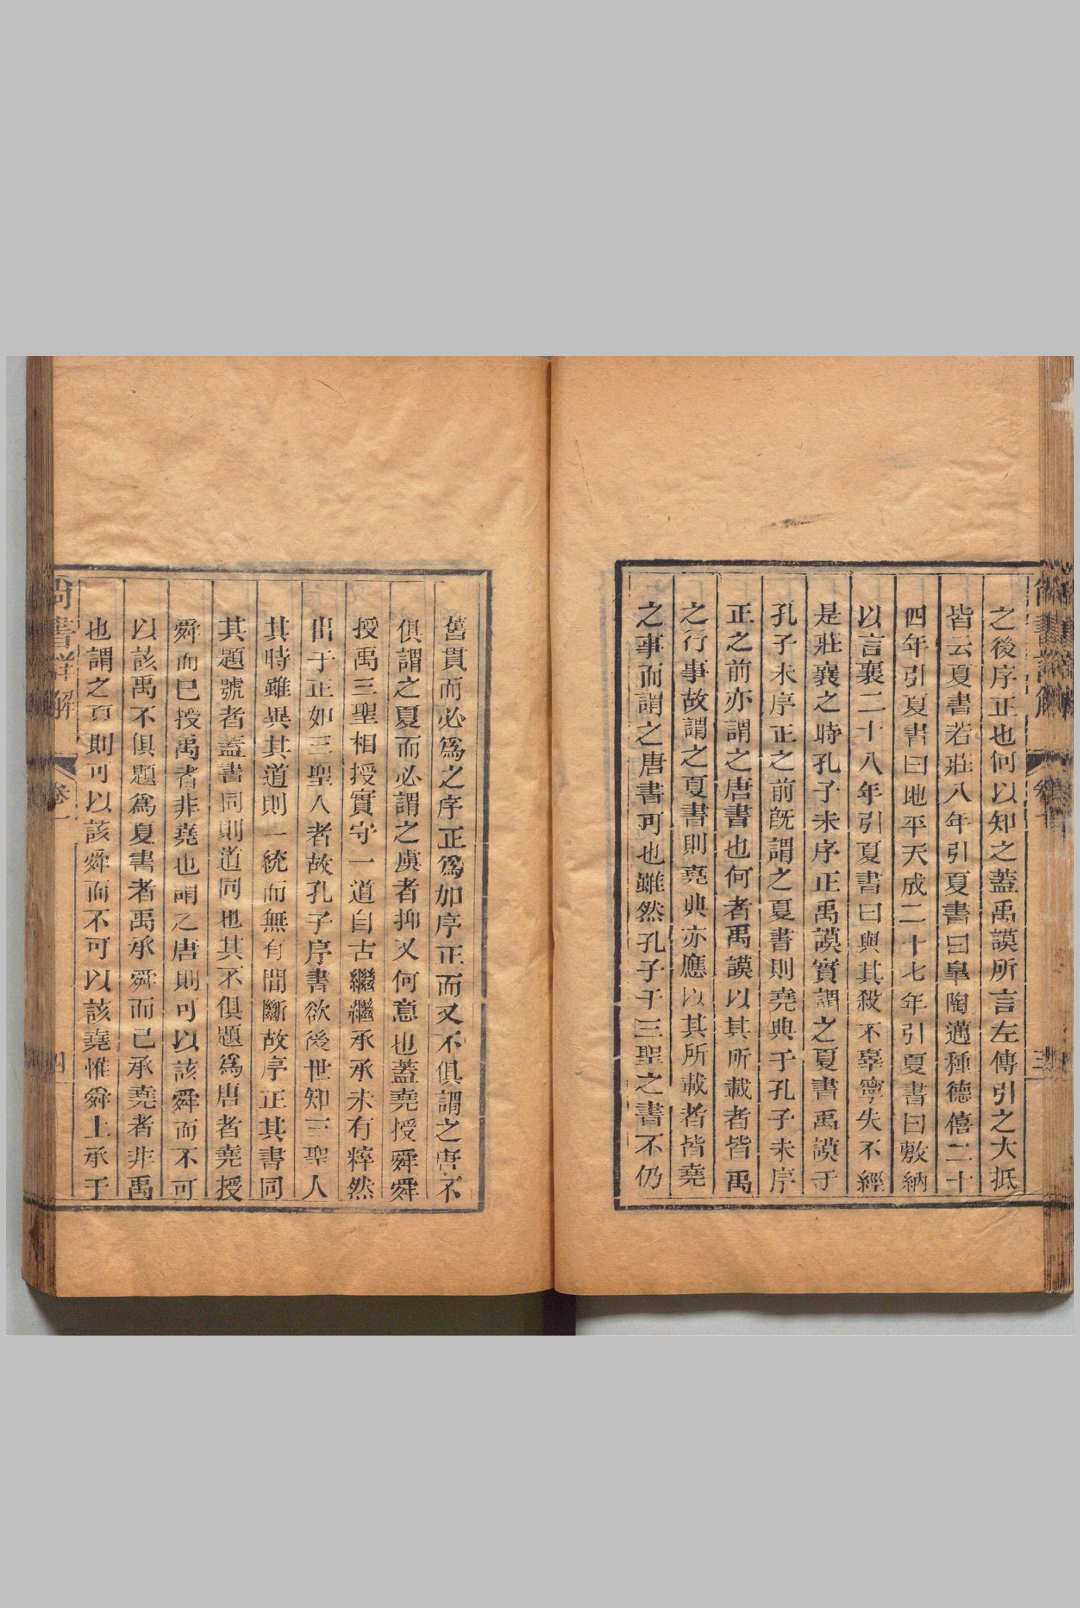 之後序正也何以知之蓋禹謨所言左傳引之大抵
皆云夏書若莊八年引夏書曰皐陶邁種德僖二十
四年引夏書曰地平天成二十七年引夏書曰敷納
以言襄二十八年引夏書曰與其殺不辜寧失不經
是莊襄之時孔子未序正禹謨實謂之夏書禹謨于
孔子未序正之前旣謂之夏書則堯典于孔子未序
正之前亦謂之唐書也何者禹謨以其所載者皆禹
之行事故謂之夏書則堯典亦應以其所載者皆堯
之事而謂之唐書可也雖然孔子于三聖之書不仍
舊貫而必爲之序正爲如序正而又不俱謂之唐不
俱謂之夏而必謂之虞者抑又何意也蓋堯授舜舜
授禹三聖相授實守一道自古繼繼承承未有粹然
出于正如三聖人者故孔子序書欲後世知三聖人
其時雖異其道則一統而無有間斷故序正其書同
其題號者蓋書同則道同也其不俱題爲唐者堯授
舜而已授禹者非堯也謂之唐則可以該舜而不可
以該禹不俱題爲夏書者禹承舜而已承堯者非禹
也謂之夏則可以該舜而不可以該堯惟舜上承于
尚書詳解
卷一
四